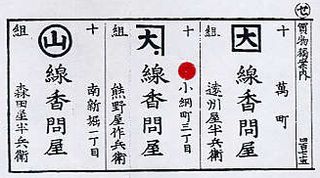 せ
買物獨案内
四百七十五
十
萬町
大
線香問屋
組
遠州屋半兵衛
十
小網町三丁目
大
線香問屋
組
熊野屋作兵衛
十
南新堀一丁目
山
線香問屋
組
森田屋半兵衛